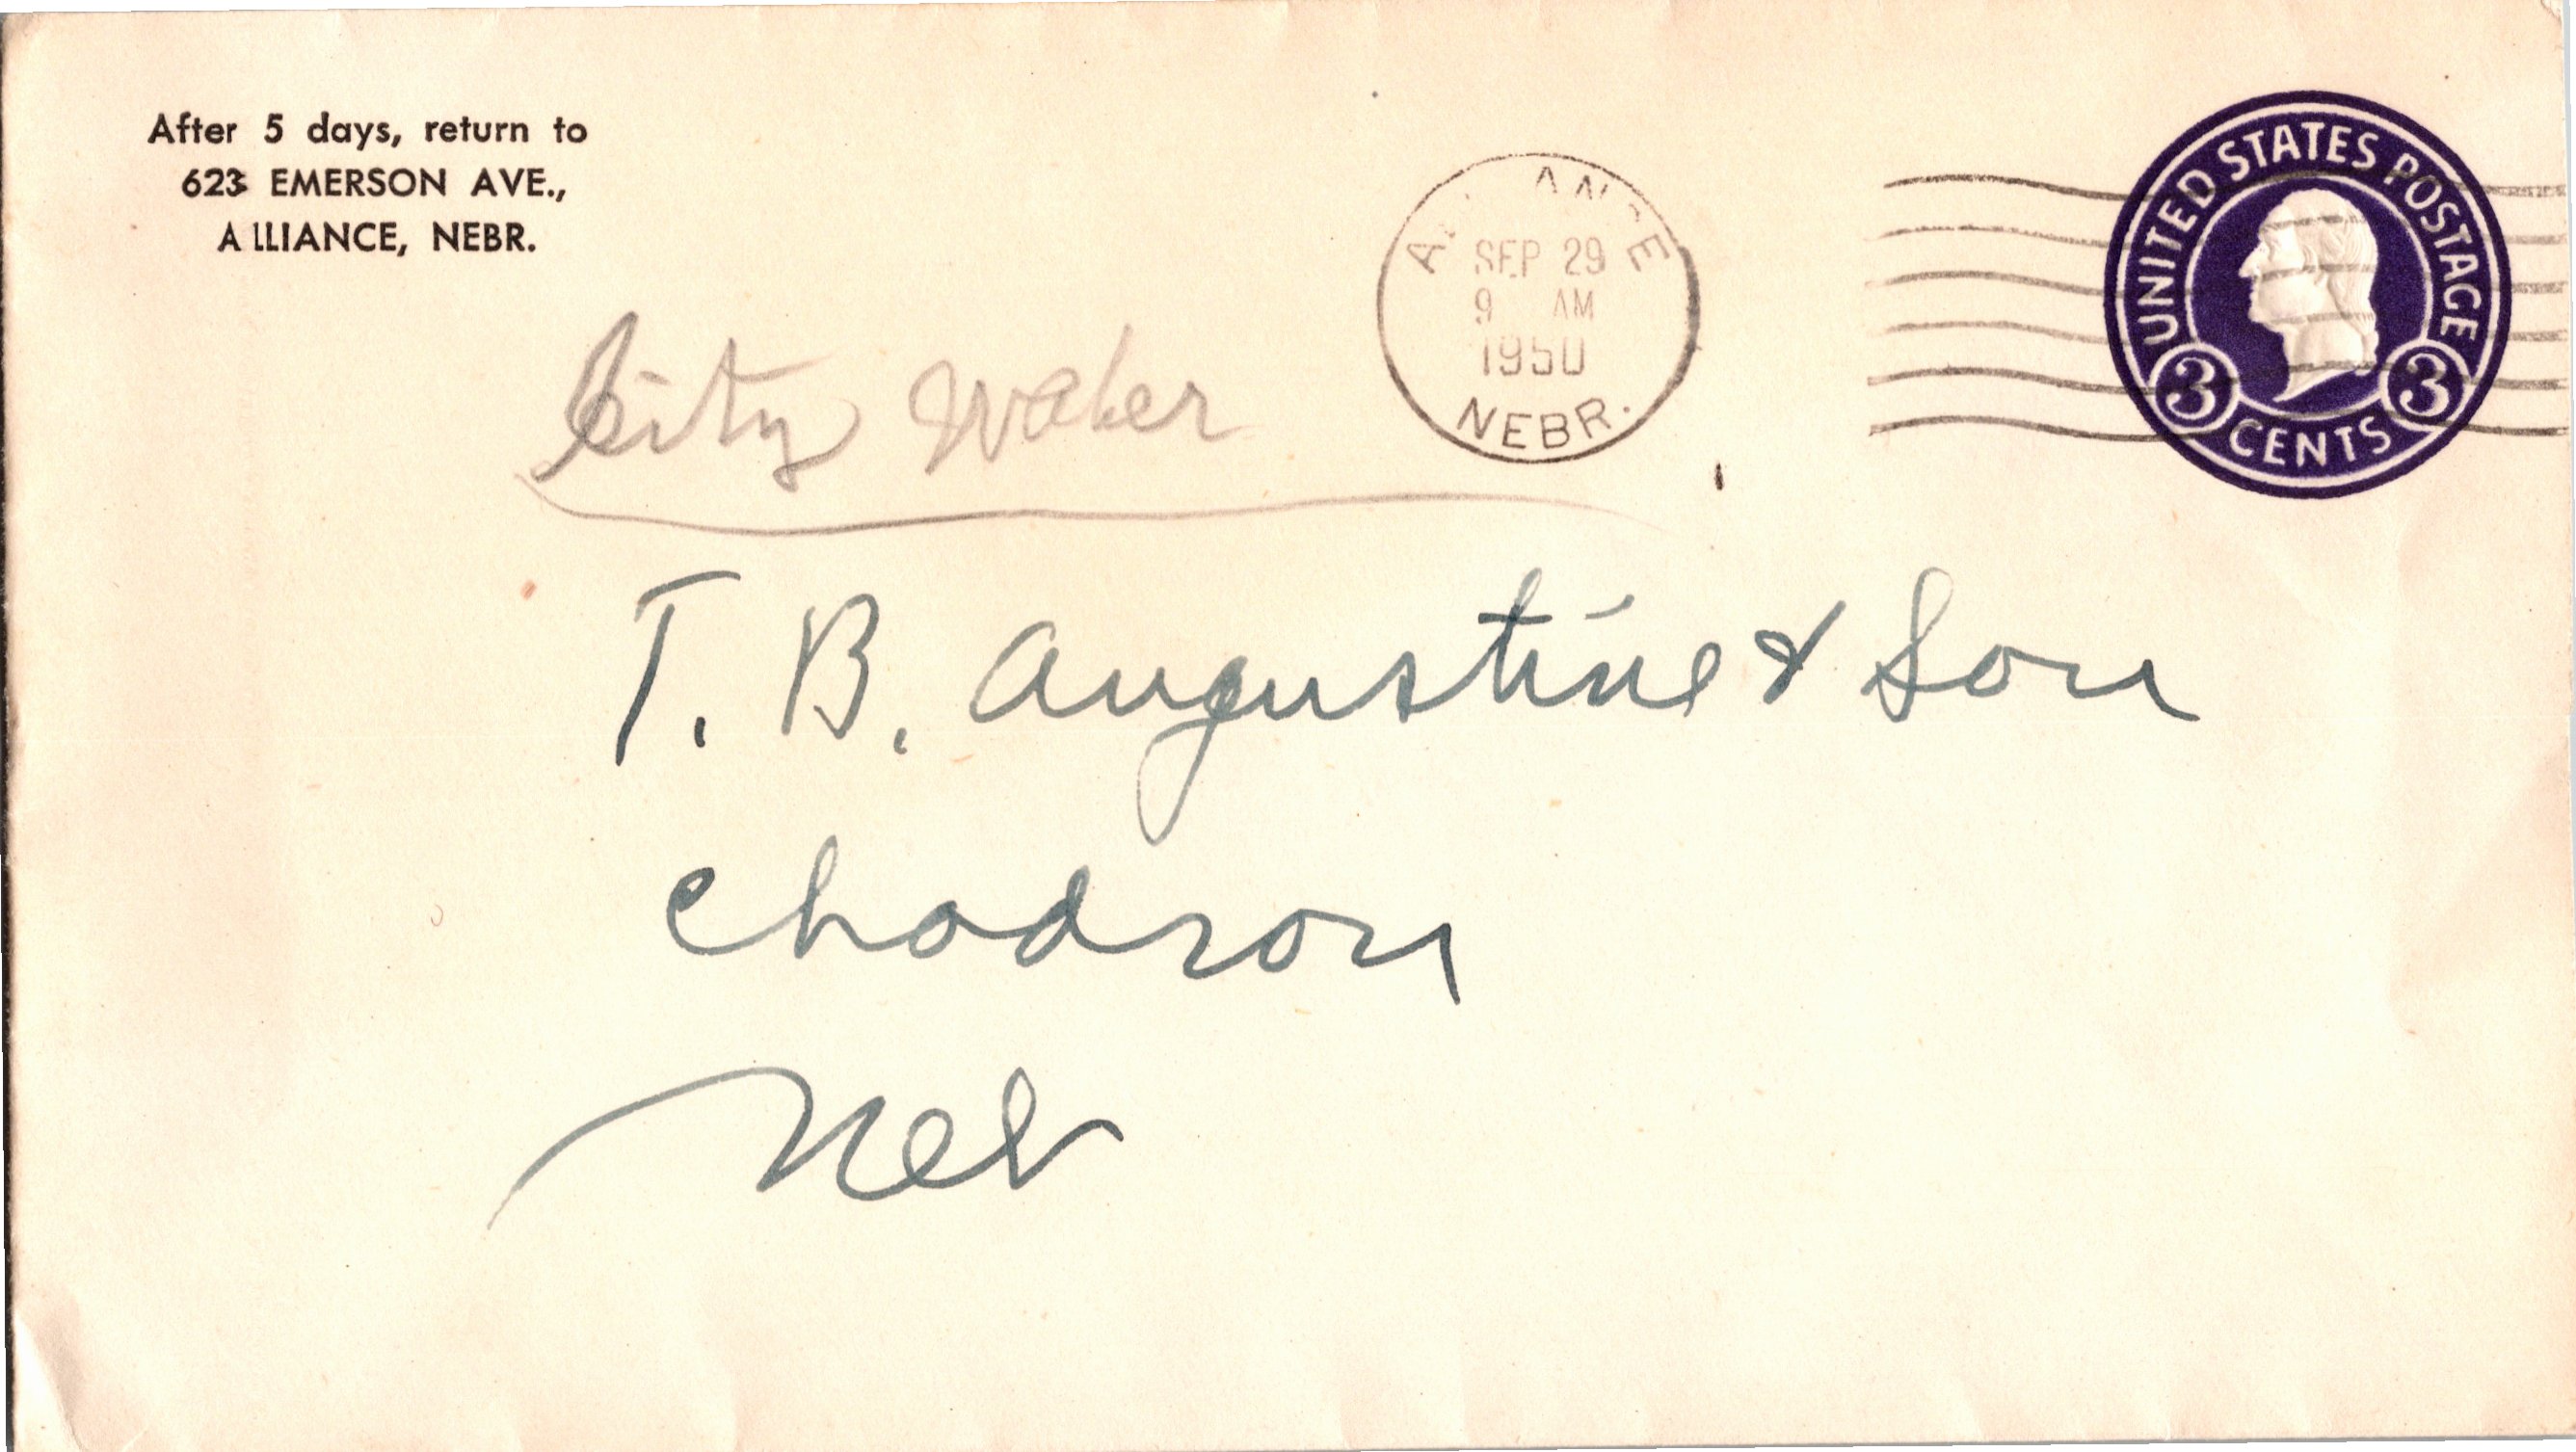 After 5 days, return to
623 EMERSON AVE.,
ALLIANCE, NEBR.
ALLIANCE
SEP 29
9 AM
1950
NEBR.
UNITED STATES POSTAGE
3 CENTS 3
City Water
T. B. Augustine & Son
Chadron
Neb